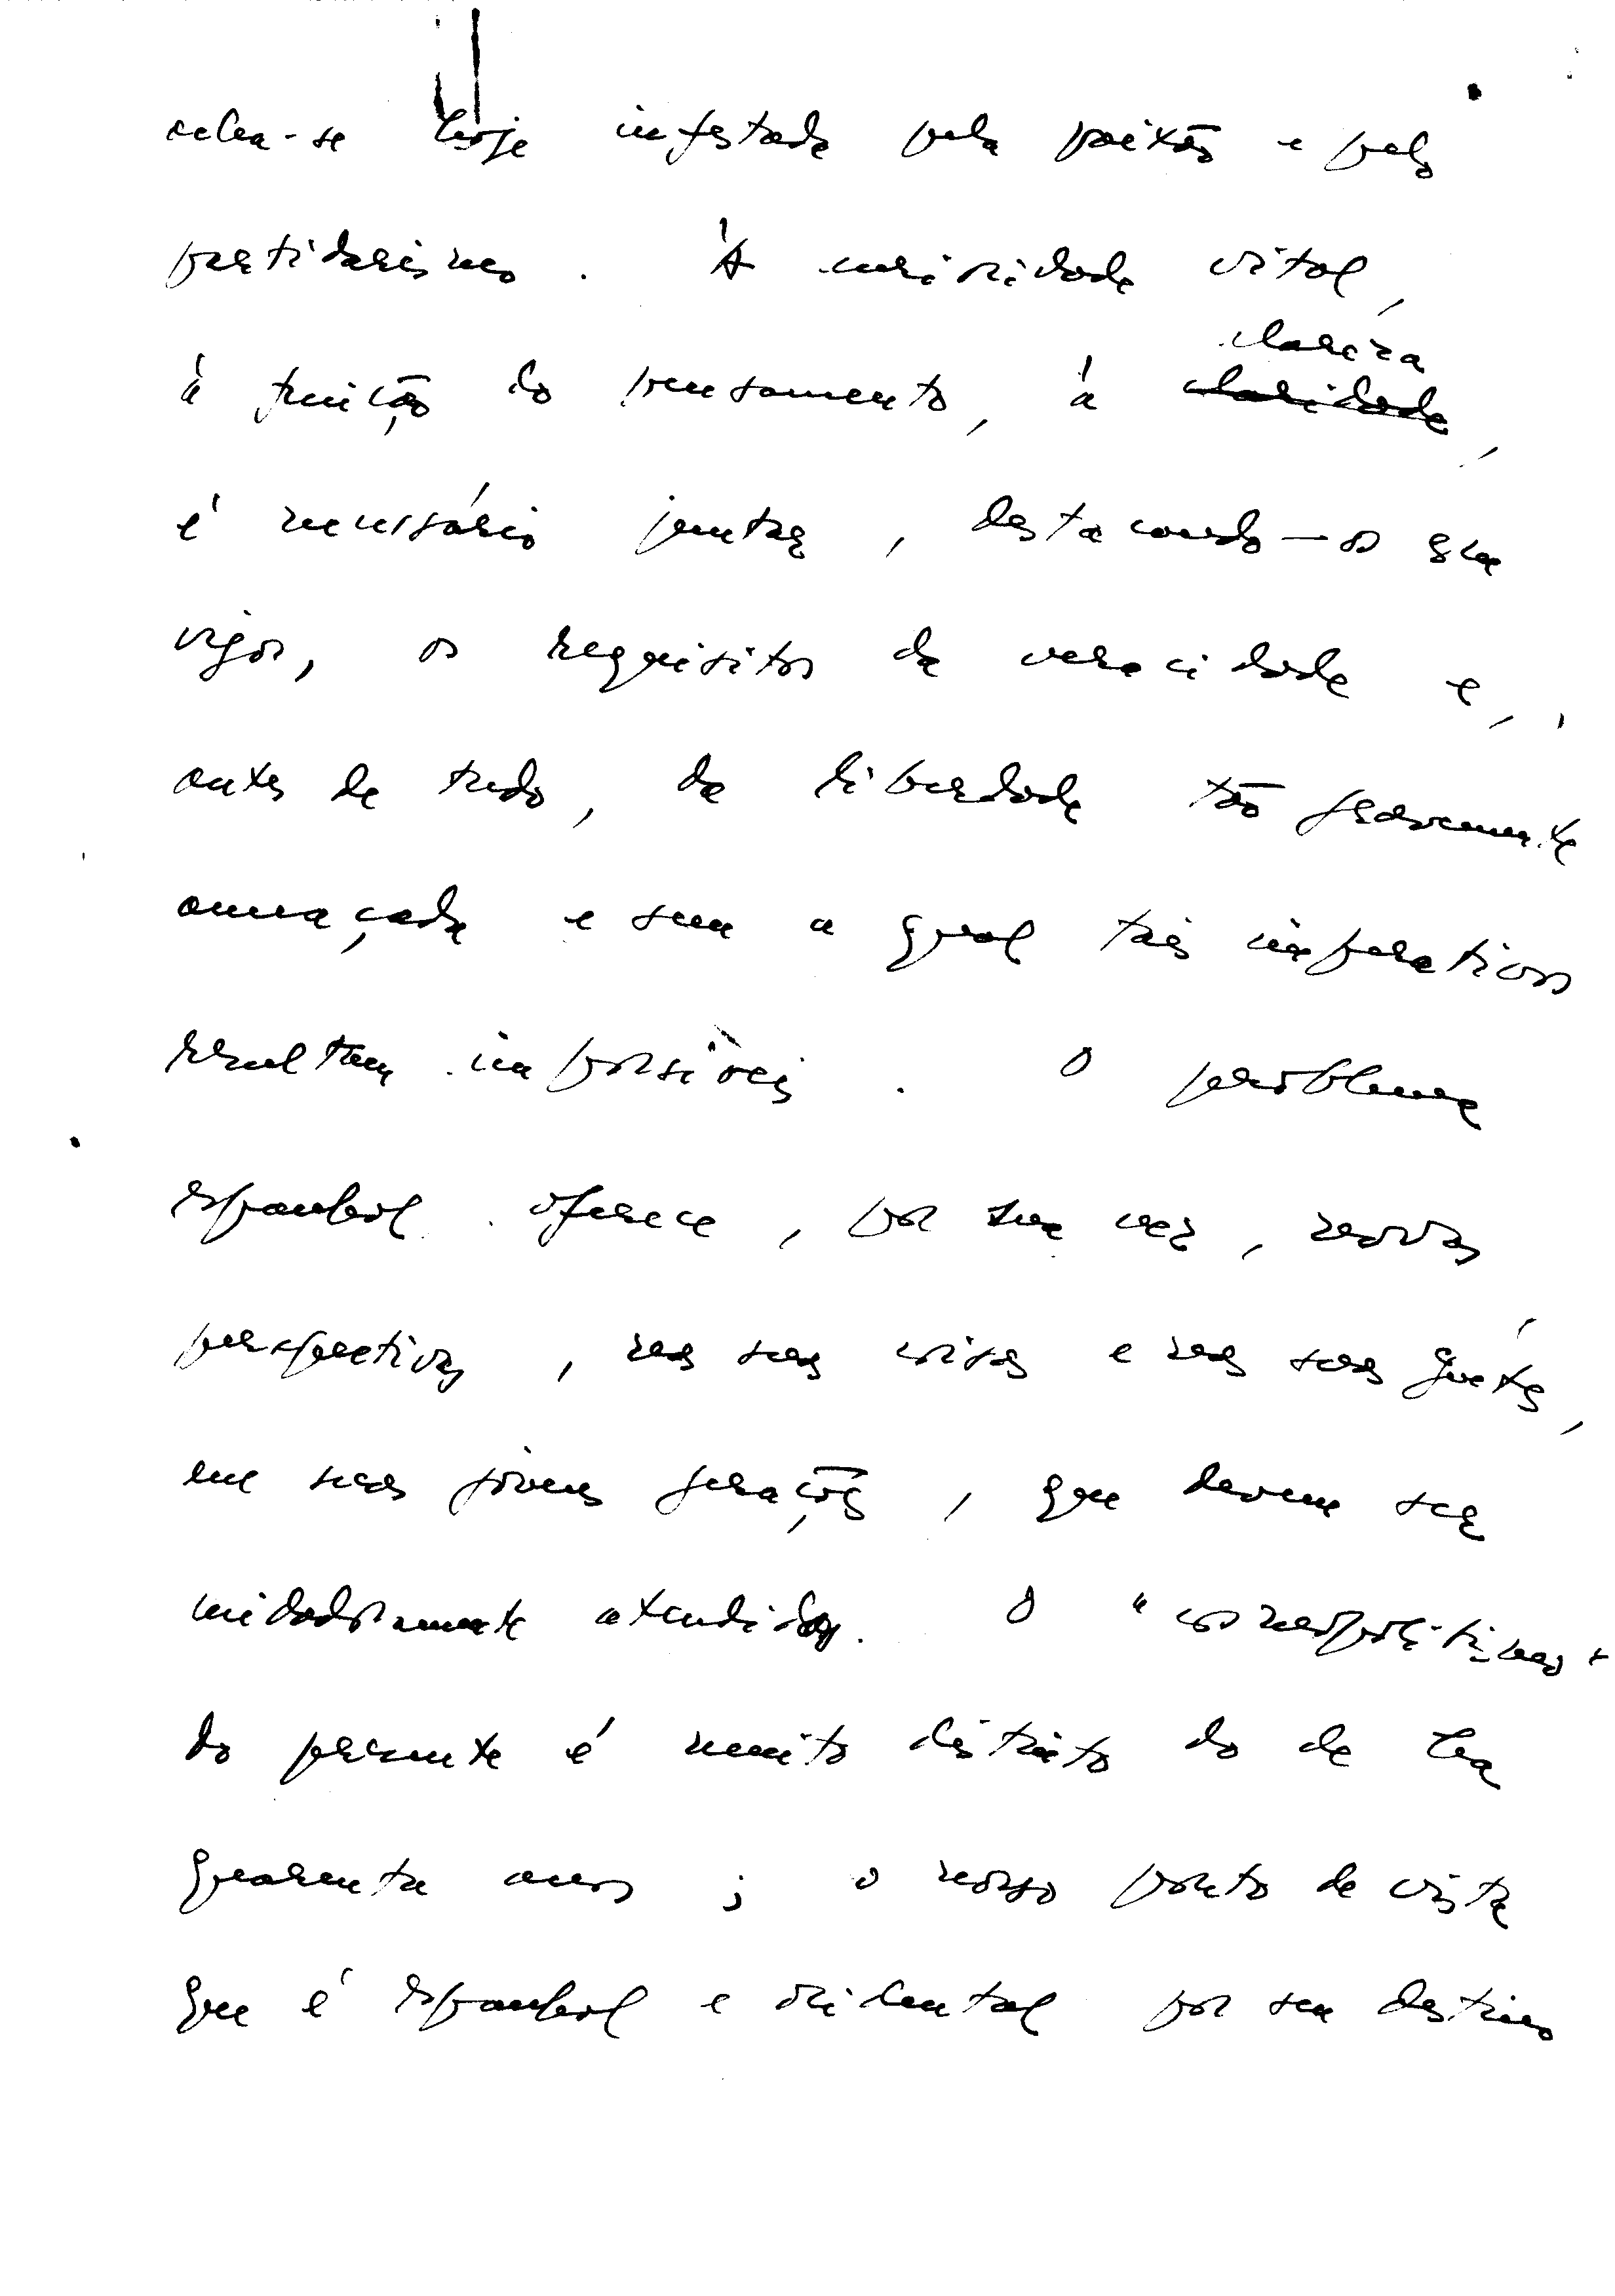 acha-se hoje infestada pela paixão e pelo
partidarismo. À curiosidade vital,
à fruição do pensamento, à claridade clareza,
é necessário juntar, destacando-os em
vigor, os requisitos da veracidade e,
antes de tudo, da liberdade tão gravemente
ameaçada e sem a qual tais imperativos
resultam impossíveis. O problema
espanhol oferece, por sua vez, novas
perspectivas, nas suas coisas e nas suas gentes,
em suas jóvens gerações, que devem ser
cuidadosamente atendidas. O "cosmopolitismo"
do presente é muito distinto do de há
quarenta anos; o nosso ponto de vista
que é espanhol e ocidental por seu destino